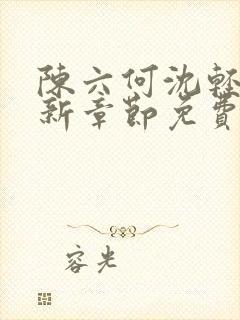 陳六何沈輕
新章節免費
容光